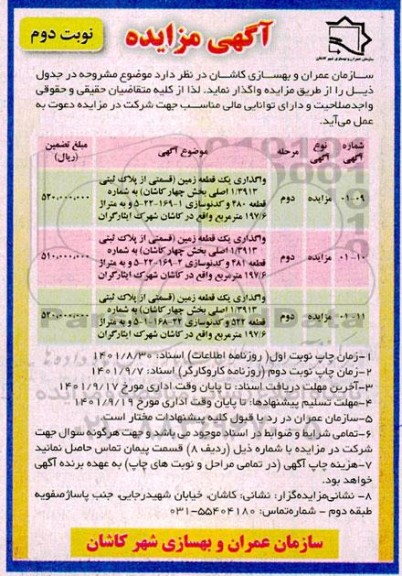 آگهی مزایده
نوبت دوم
سازمان عمران و بهسازی شهر کاشان
سازمان عمران و بهسازی کاشان در نظر دارد موضوع مشروحه در جدول
ذیل را از طریق مزایده واگذار نماید. لذا از کلیه متقاضیان حقیقی و حقوقی
واجدصلاحیت و دارای توانایی مالی مناسب جهت شرکت در مزایده دعوت به
عمل می‌آید.
شماره آگهی نوع آگهی مرحله موضوع آگهی مبلغ تضمین (ریال)
۰۱-۰۹ مزایده دوم واگذاری یک قطعه زمین (قسمتی از پلاک ثبتی
۱/۳۹۱۳ اصلی بخش چهار کاشان) به شماره
قطعه ۴۸۰ و کدنوسازی ۱-۱۶۹-۲۲-۵ و به متراژ
۱۹۷/۶ مترمربع واقع در کاشان شهرک ایثارگران
۵۲۰,۰۰۰,۰۰۰
۰۱-۱۰ مزایده دوم واگذاری یک قطعه زمین (قسمتی از پلاک ثبتی
۱/۳۹۱۳ اصلی بخش چهار کاشان) به شماره
قطعه ۴۸۱ و کدنوسازی ۲-۱۶۹-۲۲-۵ و به متراژ
۱۹۷/۶ مترمربع واقع در کاشان شهرک ایثارگران
۵۱۰,۰۰۰,۰۰۰
۰۱-۱۱ مزایده دوم واگذاری یک قطعه زمین (قسمتی از پلاک ثبتی
۱/۳۹۱۳ اصلی بخش چهار کاشان) به شماره
قطعه ۵۲۲ و کدنوسازی ۲۲-۱۶۸-۲۲-۵ و به متراژ
۱۹۷/۶ مترمربع واقع در کاشان شهرک ایثارگران
۵۲۰,۰۰۰,۰۰۰
۱-زمان چاپ نوبت اول( روزنامه اطلاعات) اسناد: ۱۴۰۱/۸/۳۰
۲-زمان چاپ نوبت دوم (روزنامه کاروکارگر) اسناد: ۱۴۰۱/۹/۷
۳-آخرین مهلت دریافت اسناد: تا پایان وقت اداری مورخ ۱۴۰۱/۹/۱۷
۴-مهلت تسلیم پیشنهادها: تا پایان وقت اداری مورخ ۱۴۰۱/۹/۱۹
۵-سازمان عمران در رد یا قبول کلیه پیشنهادات مختار است.
۶-تمامی شرایط و ضوابط در اسناد موجود می باشد و جهت هرگونه سوال جهت
شرکت در مزایده با شماره ذیل (ردیف ۸) قسمت پیمان تماس حاصل نمائید
۷-هزینه چاپ آگهی (در تمامی مراحل و نوبت های چاپ) به عهده برنده آگهی
خواهد بود.
۸- نشانی‌مزایده‌گزار: نشانی: کاشان، خیابان شهیدرجایی، جنب پاساژصفویه
طبقه دوم - شماره‌تماس: ۵۵۴۰۴۱۸۰-۰۳۱
سازمان عمران و بهسازی شهر کاشان